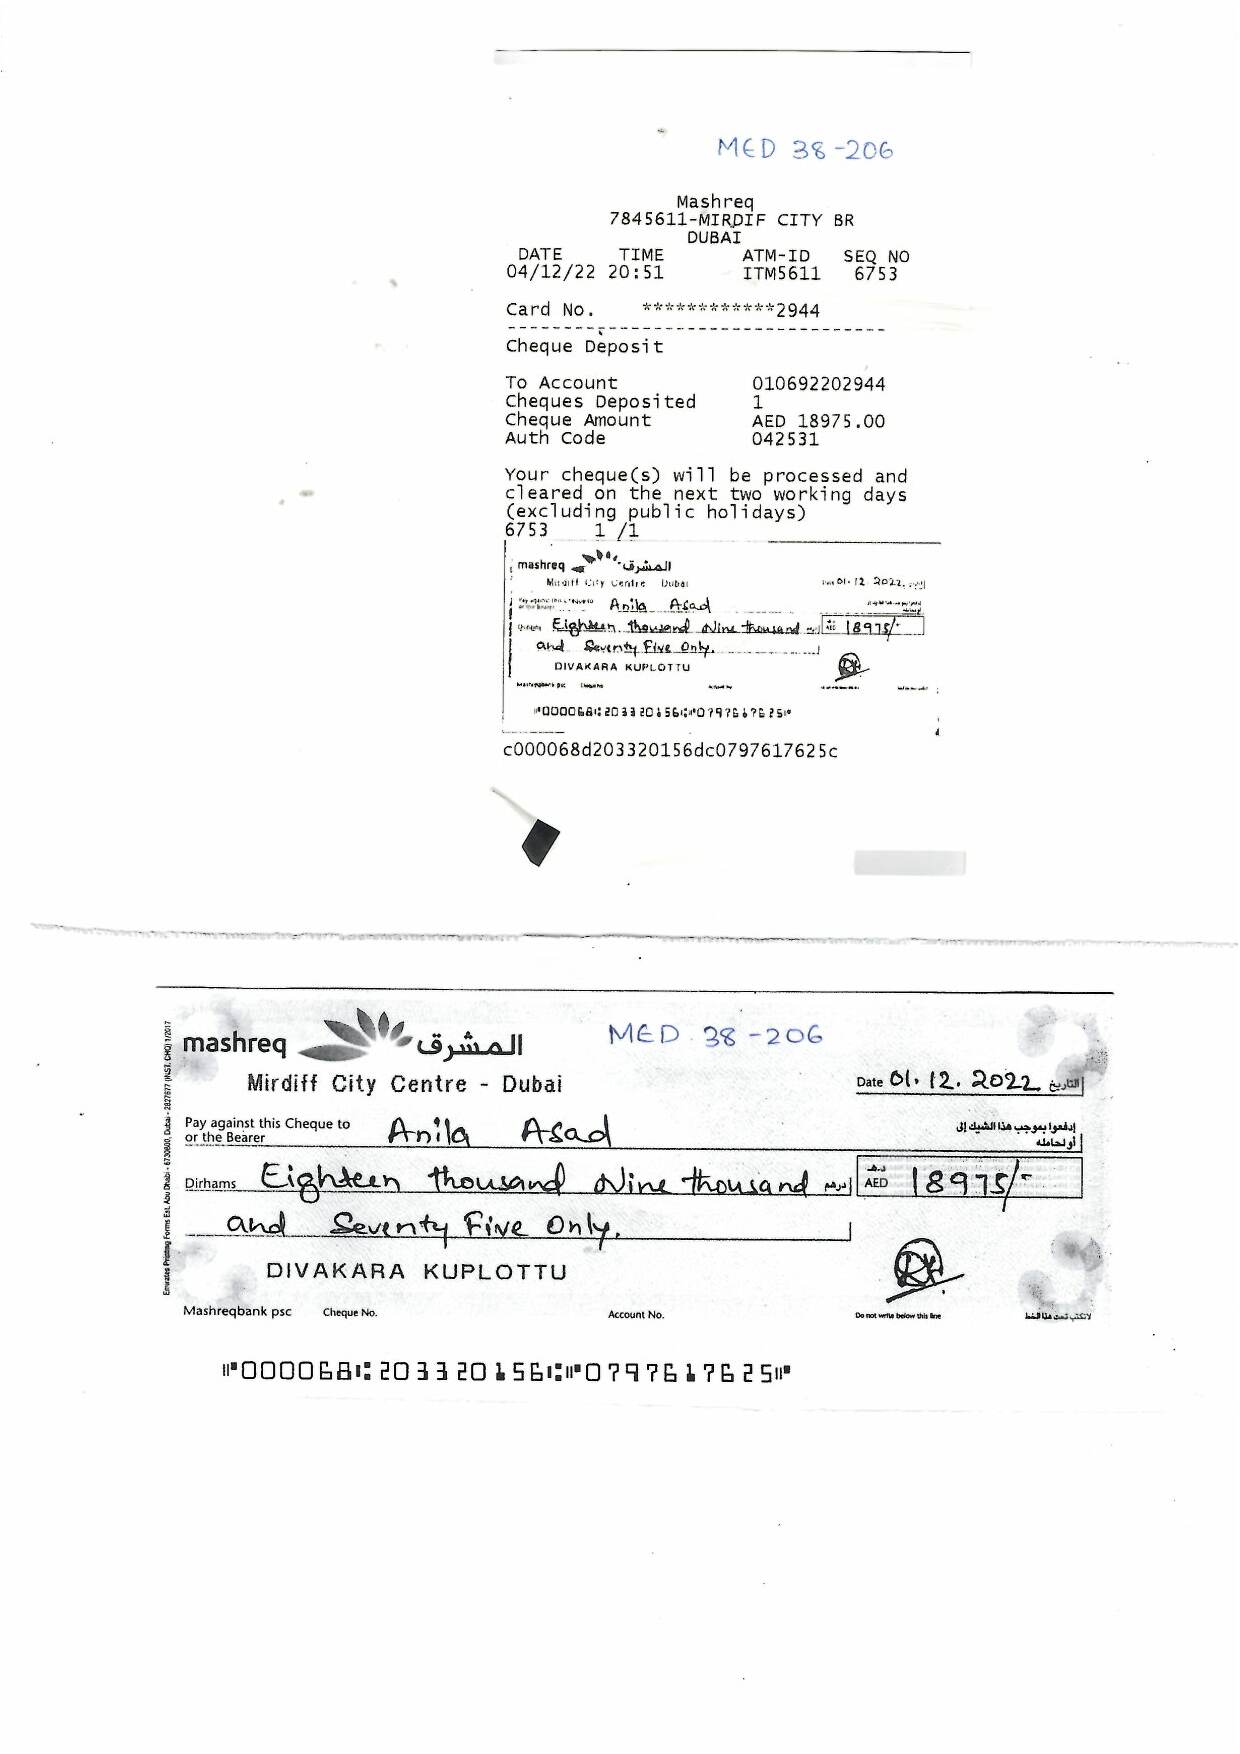 MED 38-206
Mashreq
7845611-MIRDIF CITY BR
DUBAI
DATE TIME ATM-ID SEQ NO
04/12/22 20:51 ITM5611 6753
Card No. ************2944
Cheque Deposit
To Account 010692202944
Cheques Deposited 1
Cheque Amount AED 18975.00
Auth Code 042531
Your cheque(s) will be processed and
cleared on the next two working days
(excluding public holidays)
6753 1 /1
mashreq المشرق
Mirdiff City Centre Dubai
01.12.2022
Anila Asad
Eighteen thousand Nine thousand AED 18975/-
and Seventy Five Only.
DIVAKARA KUPLOTTU
Mashreqbank psc
⑈000068⑆203320156⑆⑈0797617625⑈
c000068d203320156dc0797617625c
mashreq المشرق MED 38-206
Mirdiff City Centre - Dubai
Date 01.12.2022 التاريخ
Pay against this Cheque to
or the Bearer
Anila Asad
إدفعوا بموجب هذا الشيك إلى
أو لحامله
Dirhams Eighteen thousand Nine thousand درهم
د.هـ
AED 18975/-
and Seventy Five Only.
DIVAKARA KUPLOTTU
Mashreqbank psc Cheque No. Account No. Do not write below this line لاتكتب تحت هذا الخط
⑈000068⑆203320156⑆⑈0797617625⑈